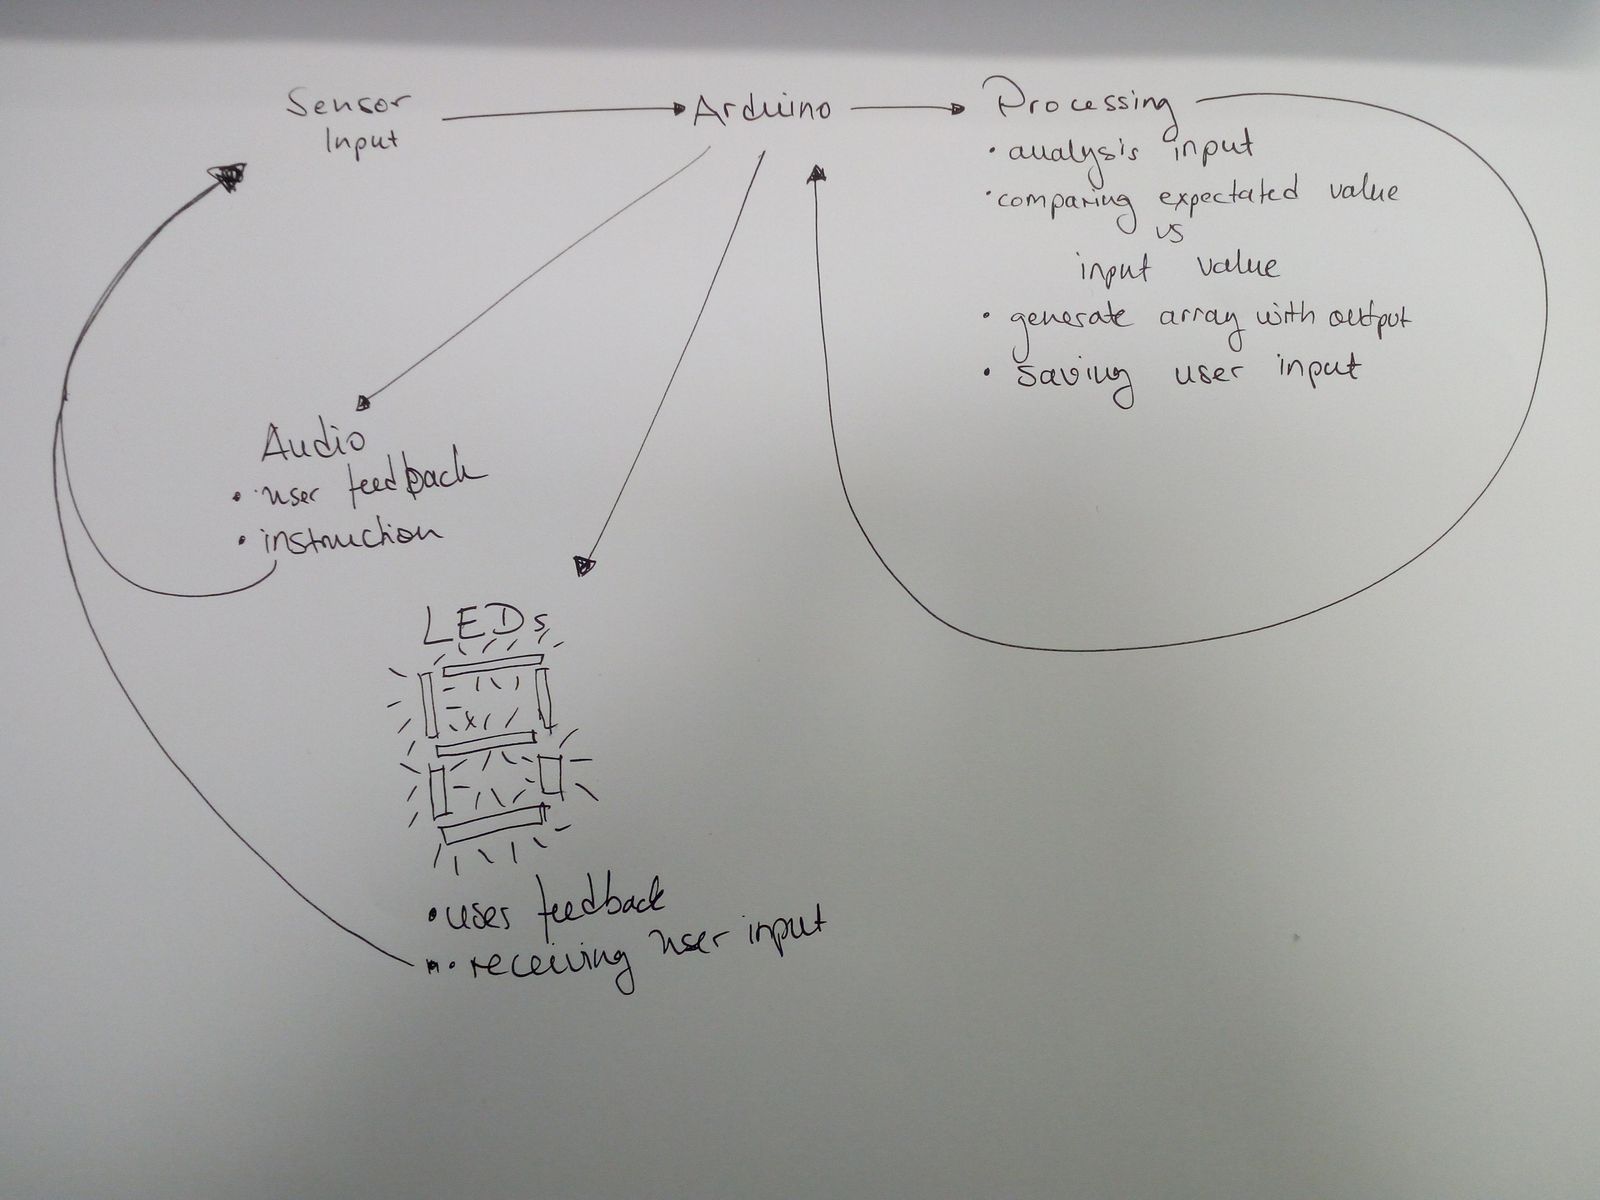 Sensor
Input
Arduino
Processing
• analysis input
• comparing expectated value
vs
input value
• generate array with output
• saving user input
Audio
• user feedback
• instruction
LEDs
• uses feedback
• receiving user input